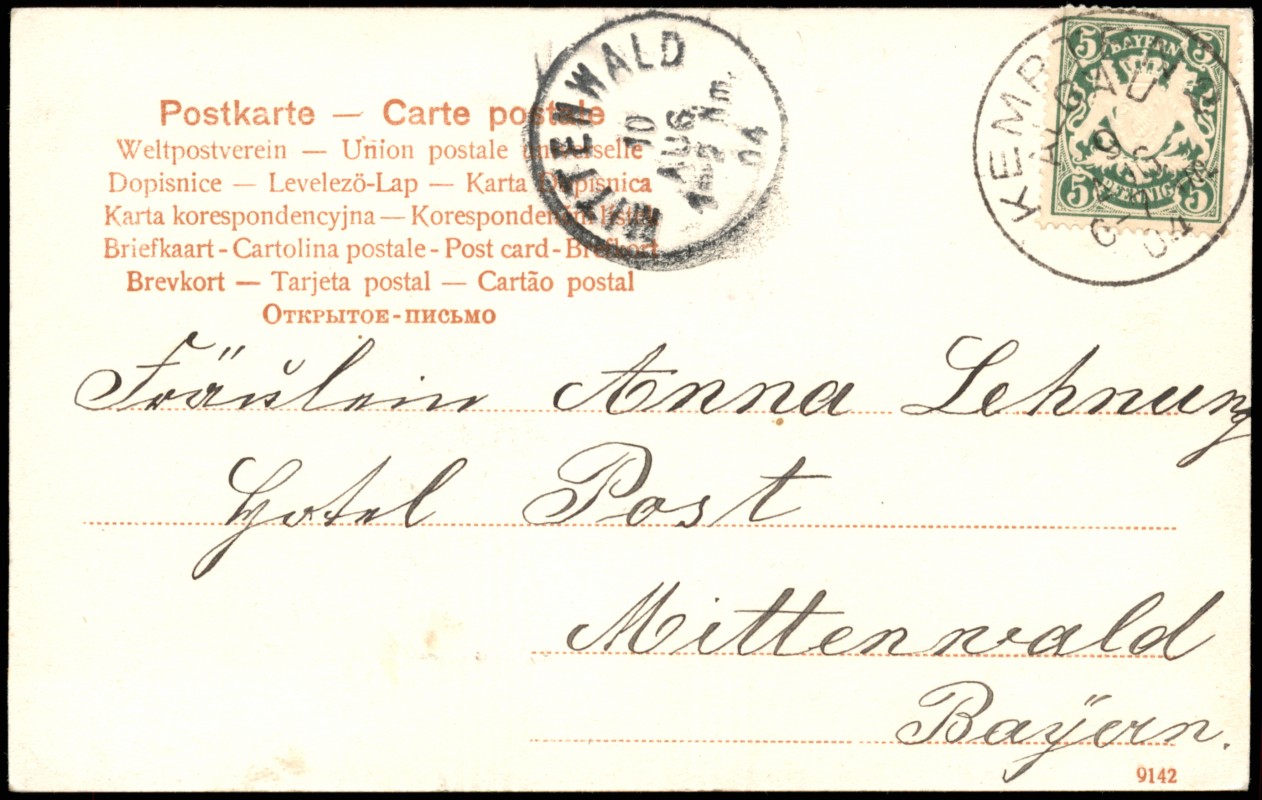 Postkarte — Carte postale
Weltpostverein — Union postale universelle
Dopisnice — Levelező-Lap — Karta Dopisnica
Karta korespondencyjna — Korespondenční listek
Briefkaart - Cartolina postale - Post card - Brefkort
Brevkort — Tarjeta postal — Cartão postal
Открытое-письмо
MITTENWALD
10
AUG
Nm.
04
KEMPTEN
ALGÄU
04
5 BAYERN 5
5 PFENNIG 5
Fräŭlein Anna Lehnung
Hotel Post
Mittenwald
Baÿern.
9142